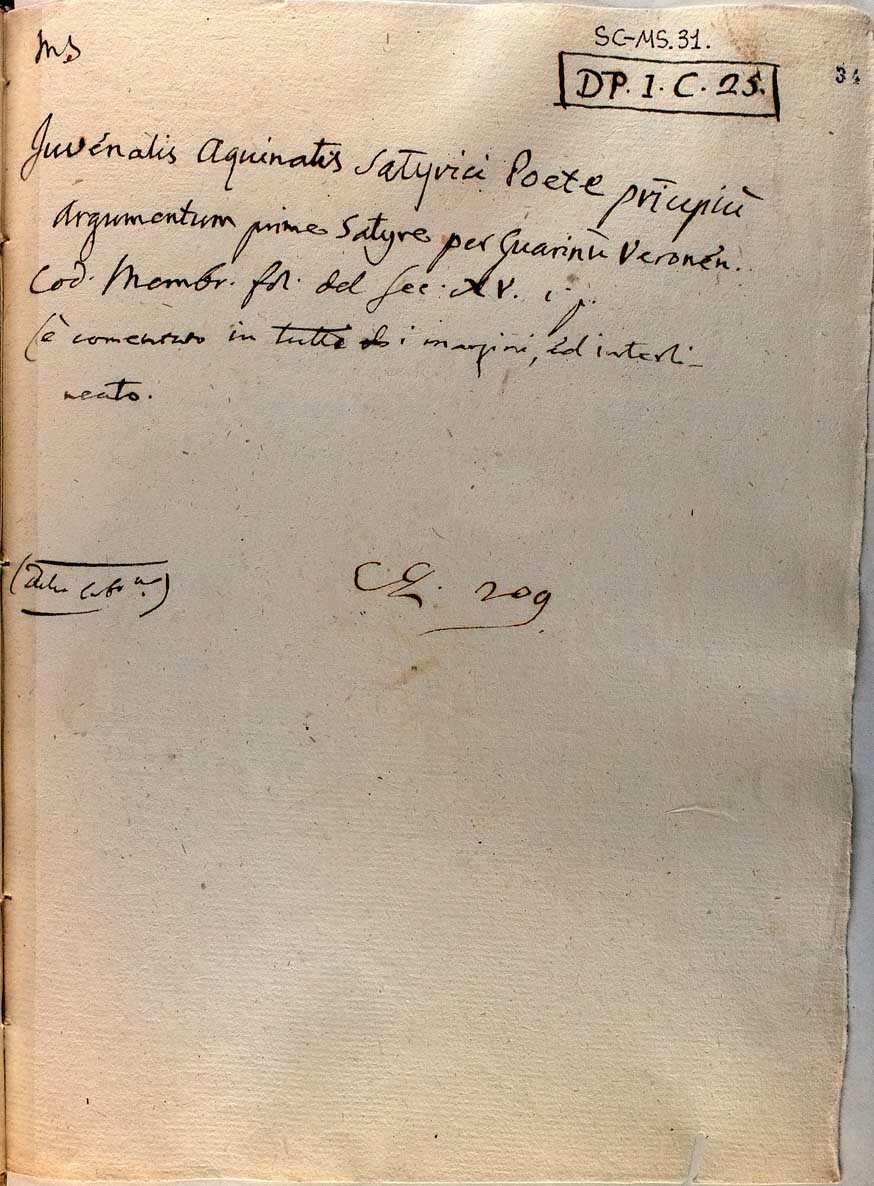 Ms
SC-MS.31.
DP. 1. C. 25.
34
Juvénalis Aquinatis Satyrici Poete prīcipiū
Argumentum prime Satyre per Guarinū Veronén.
Cod. Membr. fol. del Sec. XV.
(è comentato in tutti i margini, ed interli-
neato.
209